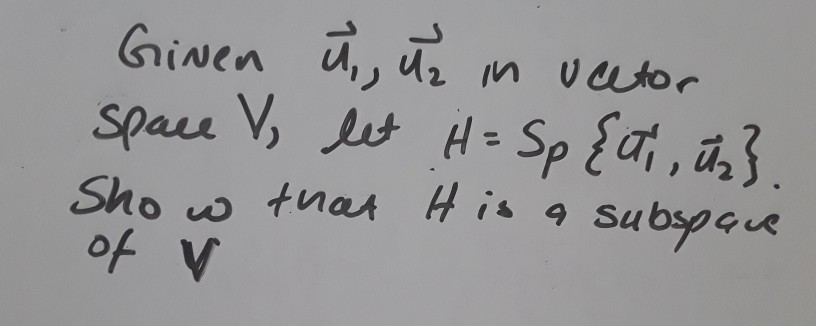 Given u⃗₁, u⃗₂ in vector
space V, let H = Sp {u⃗₁, u⃗₂}.
Show that H is a subspace
of V